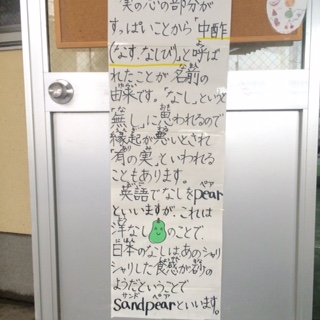 実の芯の部分が
すっぱいことから「中酢
(なす、なしび)」と呼ば
れたことが名前の
由来です。「なし」というと
「無し」に思われるので
縁起が悪いとされ
「有の実」といわれる
こともあります。
英語でなしをpear
といいますが、これは
洋なしのことで、
日本のなしはあのシャリ
シャリした食感が砂の
ようだということで
sandpearといいます。